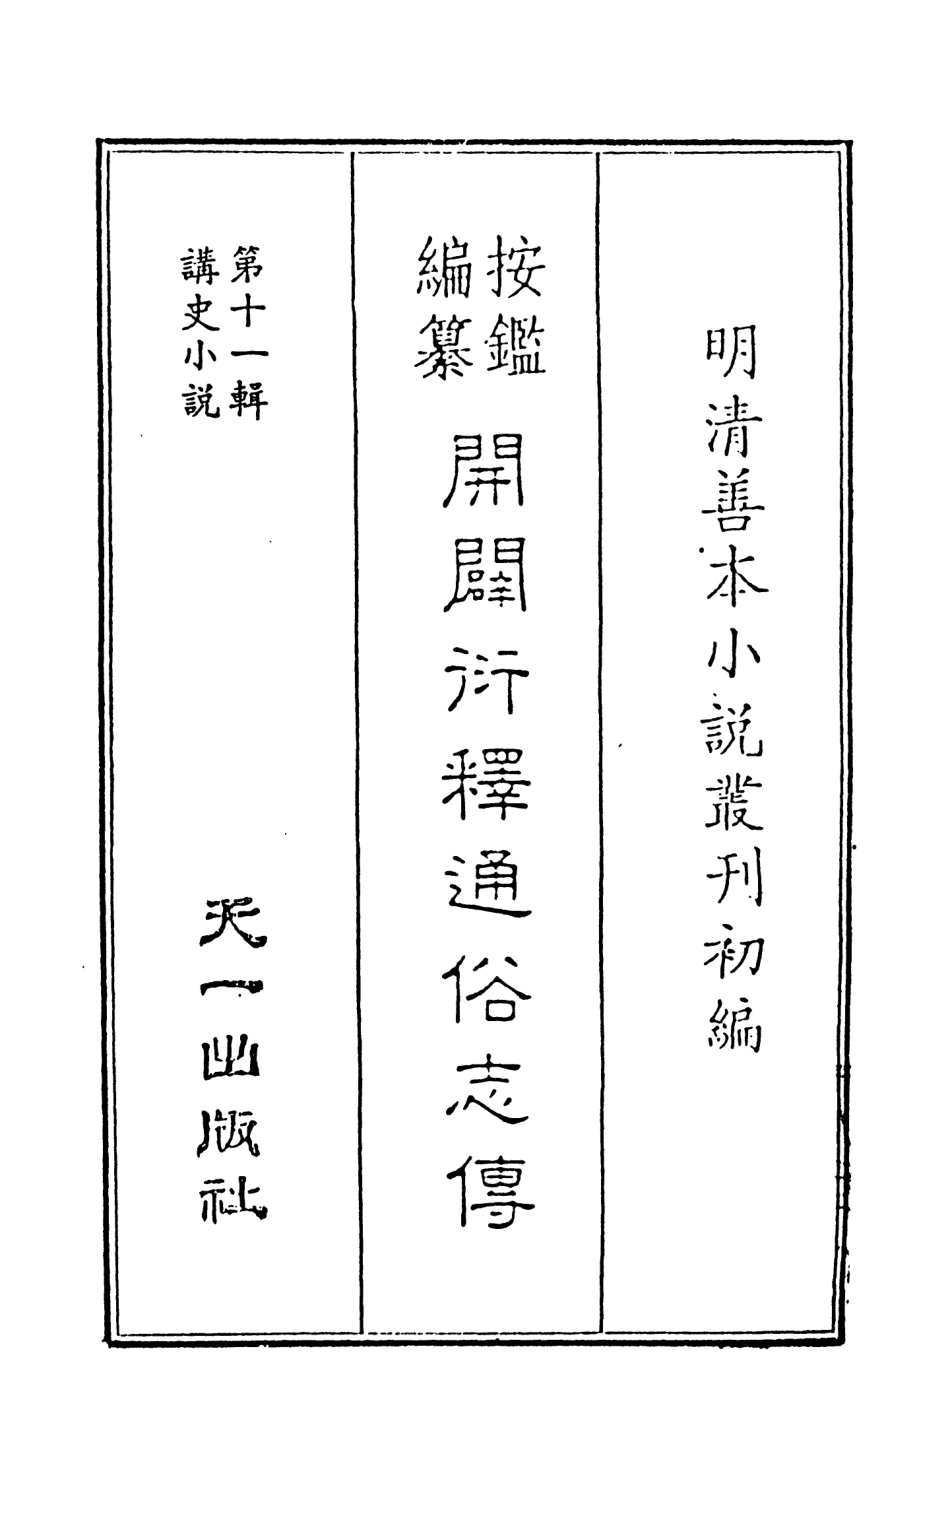 明清善本小說叢刊初編
按鑑
編纂
開闢衍釋通俗志傳
第十一輯
講史小説
天一出版社